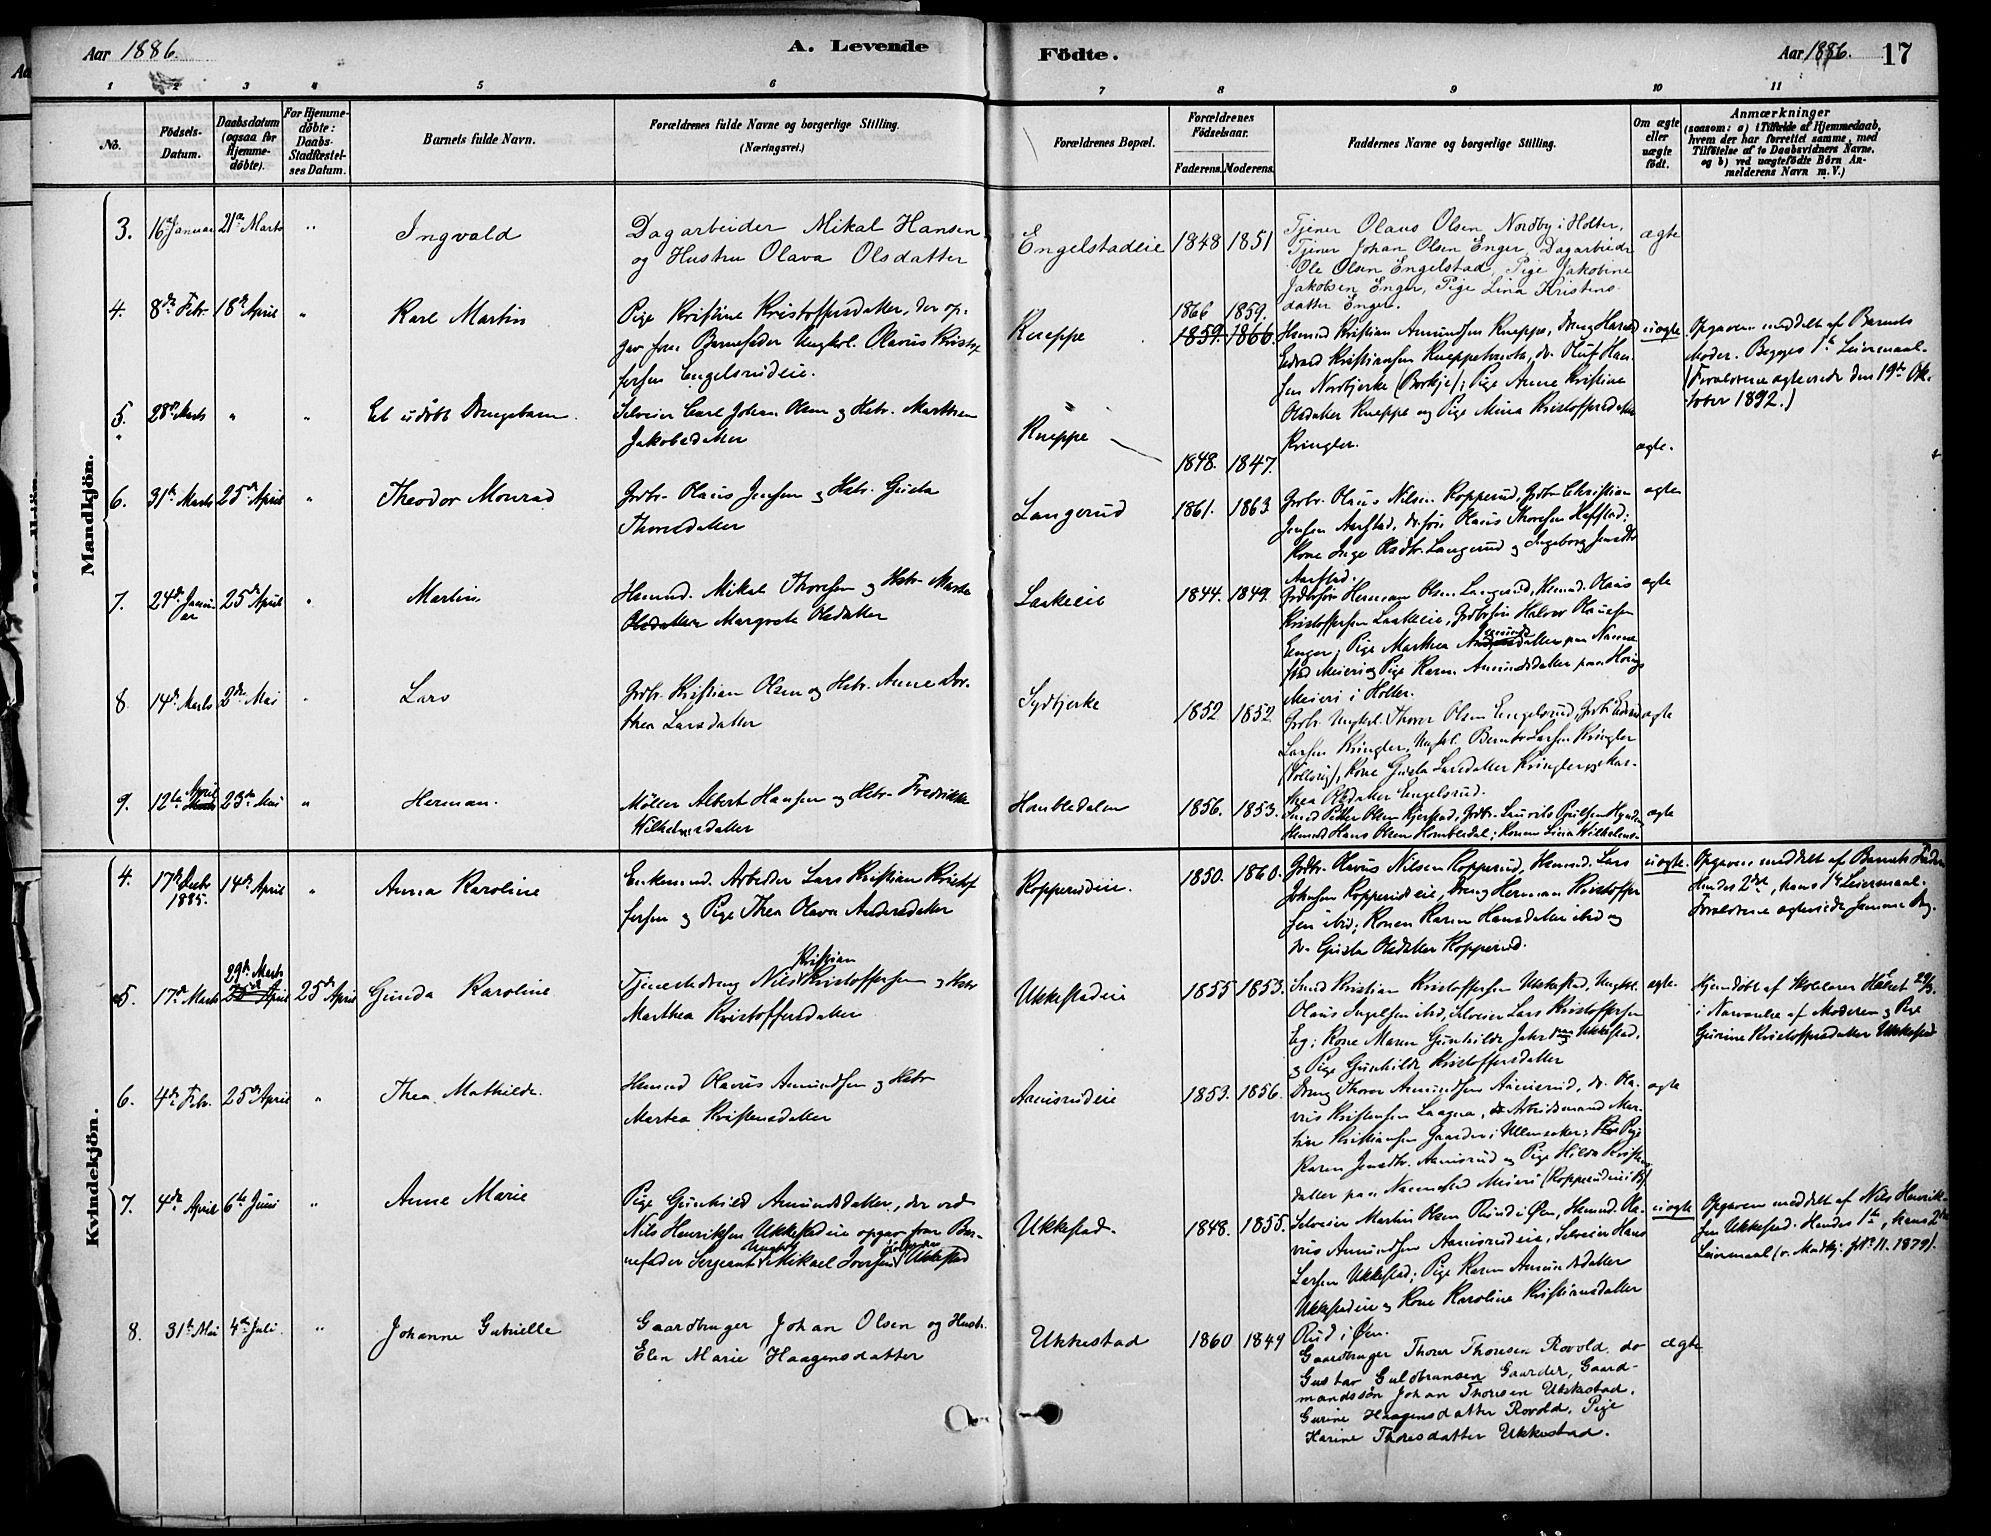 Aar 1886.
A. Levende
Födte.
Aar 1886.
17
1 2 3 4 5 6 7 8 9 10 11
No.
Födsels-Datum.
Daabsdatum (ogsaa for Hjemme-döbte).
For Hjemme-döbte: Daabs-Stadfæstel-ses Datum.
Barnets fulde Navn.
Forældrenes fulde Navne og borgerlige Stilling.
(Næringsvei.)
Forældrenes Bopæl.
Forældrenes Födselsaar.
Faderens. Moderens.
Faddernes Navne og borgerlige Stilling.
Om ægte eller uægte födt.
Anmærkninger
(saasom: a) i Tilfælde af Hjemmedaab,
hvem der har forrettet samme, med
Tilföielse af to Daabsvidners Navne,
og b) ved uægtefödte Börn An-
melderens Navn m. V.)
Mandkjön.
3. 16de Januar 21de Marts " Ingvald
Dagarbeider Mikal Hansen
og Hustru Olava Olsdatter
Engelstadeie 1848 1851
Tjener Olaus Olsen Nordby i Holter,
Tjener Johan Olsen Enger, Dagarbeider
Ole Olsen Engelstad, Pige Jakobine
Jakobsen Enger, Pige Lina Kristens-
datter Enger.
ægte
4. 8de Febr. 18de April " Karl Martin
Pige Kristine Kristoffersdatter, der op-
gav som Barnefader Ungkrl. Olavus Kristof-
fersen Engelsrudeie.
Kneppe
1866 1859.
1859. 1866
Hemnd Kristian Amundsen Kneppe, Dreng Harald
Edvard Kristiansen Kneppe, do Oluf Han-
sen Nordbjerke; Pige Anne Kristine
Olsdatter Kneppe og Pige Mina Kristoffersdatter
Kringler.
uægte
Opgaven meddelt af Barnets
Moder. Begges 1ste Leiermaal.
(Forældrene ægteviede den 19de Ok-
tober 1892.)
5. 28de Marts " " Et udöbt Drengebarn.
Selveier Carl Johan Olsen og Hstr. Marthea
Jakobsdatter
Kneppe
1848. 1847.
ægte.
6. 31te Marts 25de April " Theodor Monrad
Grdbr. Olaus Jensen og Hstr. Gusta
Thoresdatter
Langerud 1861. 1863
Grdbr. Olaus Nilsen Kopperud, Grdbr. Christian
Jensen Aarstad, Olaus Thoresen
Kone Inge Olsdtr. Langerud og Ingeborg Jensdtr.
Aarstad.
ægte
7. 24de Janu-
ar 25de April " Martin
Hemnd. Mikal Thoresen og Hstr. Marthe
Olsdatter Margrete Olsdatter
Laakeeie 1844. 1849.
Herman Olsen Langerud, Hemnd. Olaus
Kristoffersen Laakeeie, Halvor Olaussen
Enger; Pige Marthea Amundsdatter paa Nanne-
stad Meieri og Pige Karen Amundsdatter paa
Meieri i Holter.
ægte
8 14de Marts 2den Mai " Lars
Grdbr. Kristian Olsen og Hstr. Anne Dor-
thea Larsdatter
Sydbjerke 1852 1852
Grdbr. Ungkrl. Thorer Olsen Engelsrud, Grdbr. Edvard
Larsen Kringler, Ungkrl. Bernt Larsen Kringler
Kone Gusta Larsdatter Kringler og Mar-
thea Olsdatter Engelsrud.
ægte
9. 12te April Marts 23de Mai " Herman.
Möller Albert Hansen og Hstr. Fredrikke
Wilhelmsdatter
Hombledalen 1856. 1853.
Smed Petter Olsen, Grdbr. Laurits Poulsen
Hemnd Hans Olsen Hombledal; Konen Lina Wilhelms-
ægte
Kvindekjön.
4. 17de Decbr
1885. 14de April " Anna Karoline
Enkemnd. Arbeider Lars Kristian Kristof-
fersen og Pige Thea Olava Andersdatter
Kopperudeie. 1850. 1860.
Grdbr. Olavus Nilsen Kopperud, Hemnd. Lars
Johnsen Kopperudeie, Dreng Herman Kristoffer-
sen ibid; Konen Karen Hansdatter ibid og
do. Gusta Olsdatter Kopperud.
uægte.
Opgaven meddelt af Barnets Fader.
Hendes 2det, hans 1ste Leiermaal.
Forældrene ægteviede samme Dag.
5. 17de Marts 29de Marts
25de April 25de April Gunda Karoline
Tjenestedreng Nils Kristian Kristoffersen og Hstr
Marthea Kristoffersdatter
Ukkestadeie 1855 1853.
Smed Kristian Kristoffersen Ukkestad, Ungkrl.
Olaus Ingelsen ibid, Selveier Lars Kristoffersen
Eg; Kone Maren Gunhilde paa Ukkestad,
og Pige Gunhilde Kristoffersdatter
ægte.
Hjemdöbt af Skolelærer 29/3
i Nærværelse af Moderen og Pige
Gurine Kristoffersdatter Ukkestad
6. 4de Febr. 25de April " Thea Mathilde.
Hemnd Olavus Amundsen og Hstr
Martea Kristensdatter
Aamisrudeie 1853. 1856.
Dreng Thorer Amundsen Aamisrud, do. Ola-
vus Kristensen Laagna, Arbeidsmand Mar-
tin Kristiansen Gaarder i Ullensaker; Pige
Karen Jensdtr. Aamisrud og Pige Hilda Kristens-
datter paa Nannestad Meieri
ægte
7. 4de April 6te Juni " Anne Marie
Pige Gunhild Amundsdatter, der ved
Nils Henriksen Ukkestadeie opgav som Bar-
nefader Sergeant Ungkrl. Mikael Iversen Ukkestad
Ukkestad. 1848. 1855.
Selveier Martin Olsen Rud i Öen, Hemnd. Ola-
vus Amundsen Aamisrudeie, Selveier Hans
Larsen Ukkestad; Pige Karen Amundsdatter
Ukkestadeie og Kone Karoline Kristiansdatter
Rud i Öen.
uægte
Opgaven meddelt af Nils Henrik-
sen Ukkestad. Hendes 1ste, hans 2det
Leiermaal (v. Mandkj. No. 11. 1879).
8. 31te Mai 4de Juli. " Johanne Gabrielle
Gaardbruger Johan Olsen og Hustr.
Elen Marie Haagensdatter
Ukkestad 1860 1849
Gaardbruger Thorer Thoresen Rovold, do
Gustav Guldbransen Gaarder, Gaard-
mandssön Johan Thoresen Ukkestad.
Gurine Haagensdatter Rovold, Pige
Karine Thoresdatter Ukkestad.
ægte